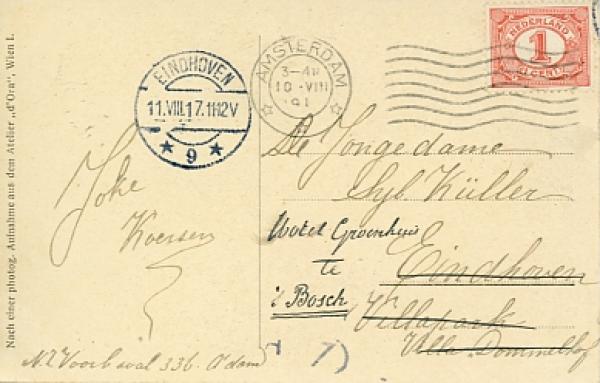 Nach einer photog. Aufnahme aus dem Atelier „d'Ora", Wien I.
EINDHOVEN
11.VIII.17.11-12V
9
AMSTERDAM
10-VIII
NEDERLAND
1
CENT
De Jongedame
Syb Küller
Hotel Groenhuis
te
's Bosch
Eindhoven
Villapark
Villa Dommelhof
Joke
Koersen
N.Z. Voorb. wal 336. A'dam
7)